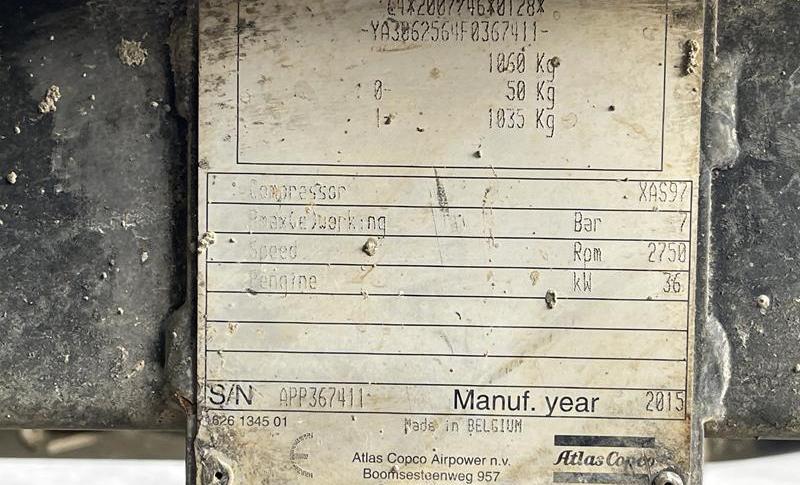 e4*2007/46*0128*
-YA3062564F0367411-
1060 Kg
0- 50 Kg
1- 1035 Kg
Compressor XAS97
Pmax(e)working Bar 7
Speed Rpm 2750
Pengine kW 36
S/N APP367411 Manuf. year 2015
1626 1345 01 Made in BELGIUM
Atlas Copco Airpower n.v. Atlas Copco
Boomsesteenweg 957